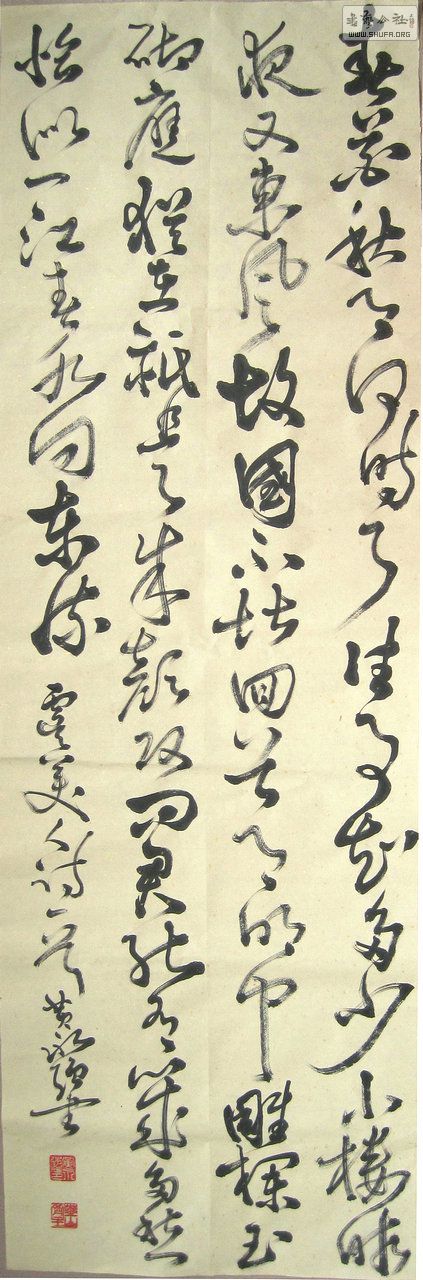 書藝公社
WWW.SHUFA.ORG
春花秋月何時了往事知多少小樓昨
夜又東風故國不堪回首月明中雕欄玉
砌應猶在祇是朱顏改問君能有幾多愁
恰似一江春水向東流
虞美人詩一首 黄強書